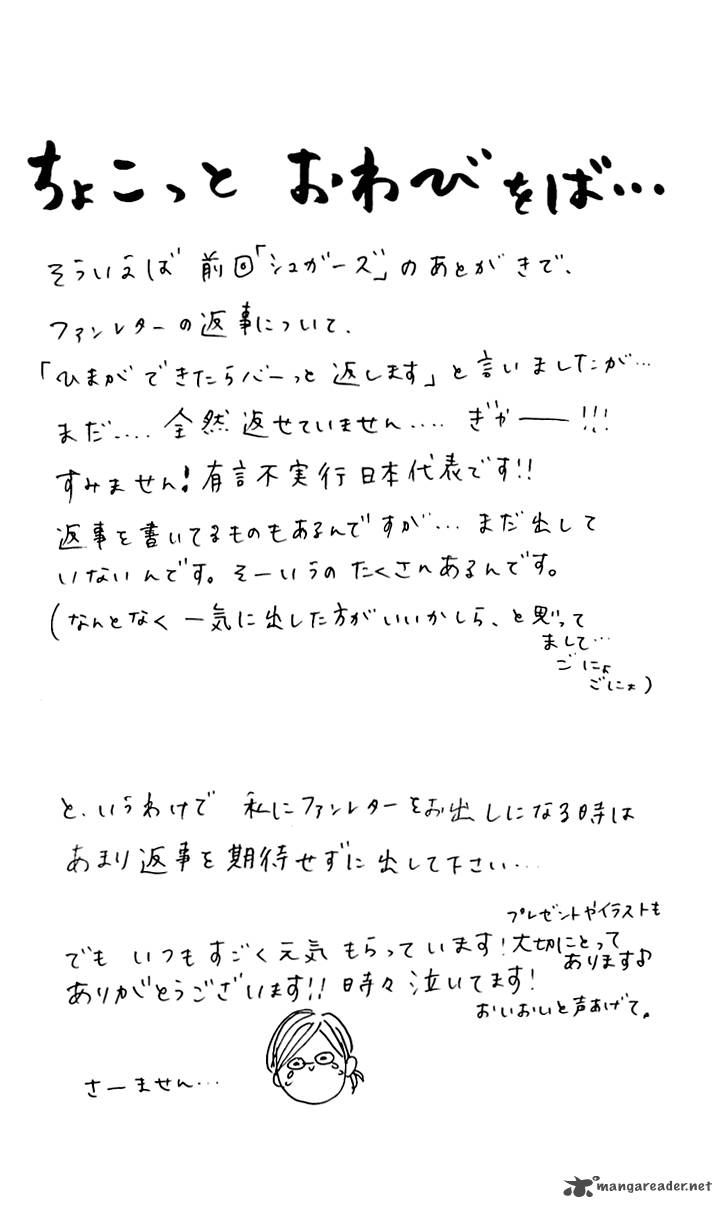 ちょこっと おわびをば…
そういえば 前回「シュガーズ」のあとがきで、
ファンレターの返事について、
「ひまができたらバーっと返します」と言いましたが…
まだ‥‥ 全然返せていません‥‥ ぎゃー!!!
すみません! 有言不実行日本代表です!!
返事を書いてるものもあるんですが… まだ出して
いないんです。そーいうの たくさんあるんです。
(なんとなく 一気に出した方がいいかしら、と思って
まして…
ごにょ
ごにょ)
と、いうわけで 私にファンレターをお出しになる時は
あまり返事を期待せずに出して下さい…
でも いつもすごく元気もらっています!
プレゼントやイラストも
大切にとって
あります♪
ありがとうございます!! 時々泣いてます!
おいおいと声あげて。
さーません…
mangareader.net